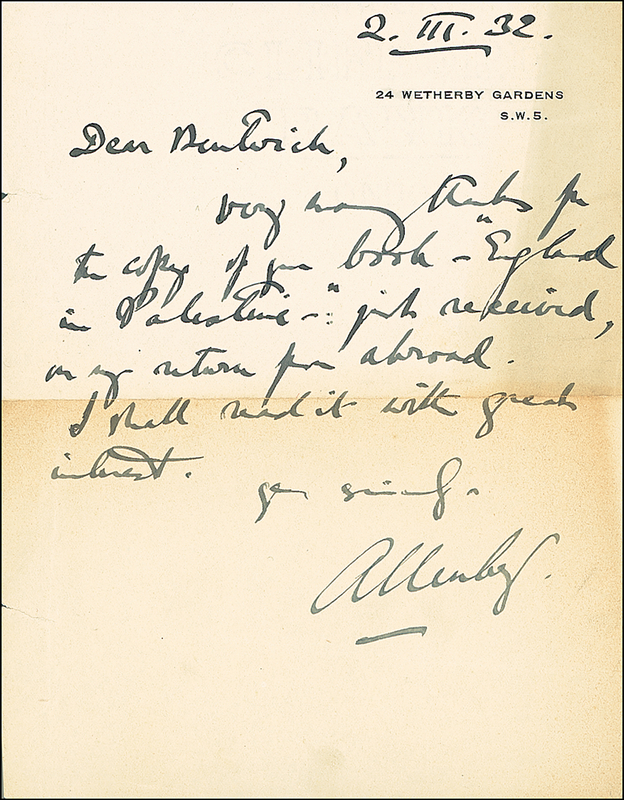 2. III. 32.
24 WETHERBY GARDENS
S.W.5.
Dear Bentwich,
very many thanks for
the copy of your book – "England
in Palestine –": just received,
on my return from abroad.
I shall read it with great
interest.
Yrs sincerely.
Allenby.